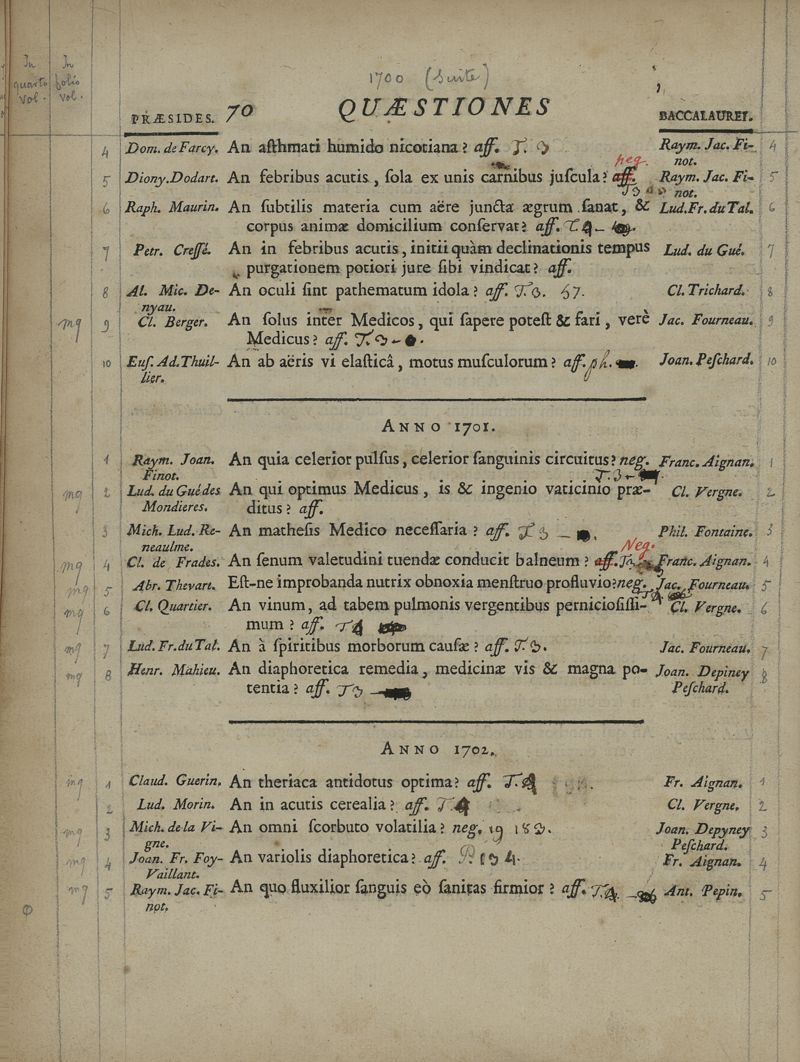 1700 (Suite)
In quarto vol. In folio vol.
PRÆSIDES. 70 QUÆSTIONES BACCALAUREI.
4 Dom. de Farcy. An aſthmati humido nicotiana? aff. Raym. Jac. Fi- 4
not.
neg.
5 Diony. Dodart. An febribus acutis, ſola ex unis carnibus juſcula? aff. Raym. Jac. Fi- 5
not.
6 Raph. Maurin. An ſubtilis materia cum aëre juncta ægrum ſanat, & Lud. Fr. du Tal. 6
corpus animæ domicilium conſervat? aff.
7 Petr. Creſſé. An in febribus acutis, initii quàm declinationis tempus Lud. du Gué. 7
purgationem potiori jure ſibi vindicat? aff.
8 Al. Mic. De- An oculi ſint pathematum idola? aff. Cl. Trichard. 8
nyau.
mq 9 Cl. Berger. An ſolus inter Medicos, qui ſapere poteſt & fari, verè Jac. Fourneau. 9
Medicus? aff.
10 Euſ. Ad. Thuil- An ab aëris vi elaſticâ, motus muſculorum? aff. Joan. Peſchard. 10
lier.
ANNO 1701.
1 Raym. Joan. An quia celerior pulſus, celerior ſanguinis circuitus? neg. Franc. Aignan. 1
Finot.
mq 2 Lud. du Gué des An qui optimus Medicus, is & ingenio vaticinio præ- Cl. Vergne. 2
Mondieres. ditus? aff.
3 Mich. Lud. Re- An matheſis Medico neceſſaria? aff. Phil. Fontaine. 3
neaulme.
Neg.
mq 4 Cl. de Frades. An ſenum valetudini tuendæ conducit balneum? aff. Franc. Aignan. 4
mq 5 Abr. Thevart. Eſt-ne improbanda nutrix obnoxia menſtruo profluvio? neg. Jac. Fourneau. 5
mq 6 Cl. Quartier. An vinum, ad tabem pulmonis vergentibus pernicioſiſſi- Cl. Vergne. 6
mum? aff.
mq 7 Lud. Fr. du Tal. An à ſpiritibus morborum cauſæ? aff. Jac. Fourneau. 7
mq 8 Henr. Mahieu. An diaphoretica remedia, medicinæ vis & magna po- Joan. Depiney 8
tentia? aff. Peſchard.
ANNO 1702.
mq 1 Claud. Guerin. An theriaca antidotus optima? aff. Fr. Aignan. 1
2 Lud. Morin. An in acutis cerealia? aff. Cl. Vergne. 2
mq 3 Mich. de la Vi- An omni ſcorbuto volatilia? neg. Joan. Depyney 3
gne. Peſchard.
mq 4 Joan. Fr. Foy- An variolis diaphoretica? aff. Fr. Aignan. 4
Vaillant.
mq 5 Raym. Jac. Fi- An quo fluxilior ſanguis eò ſanitas firmior? aff. Ant. Pepin. 5
not.